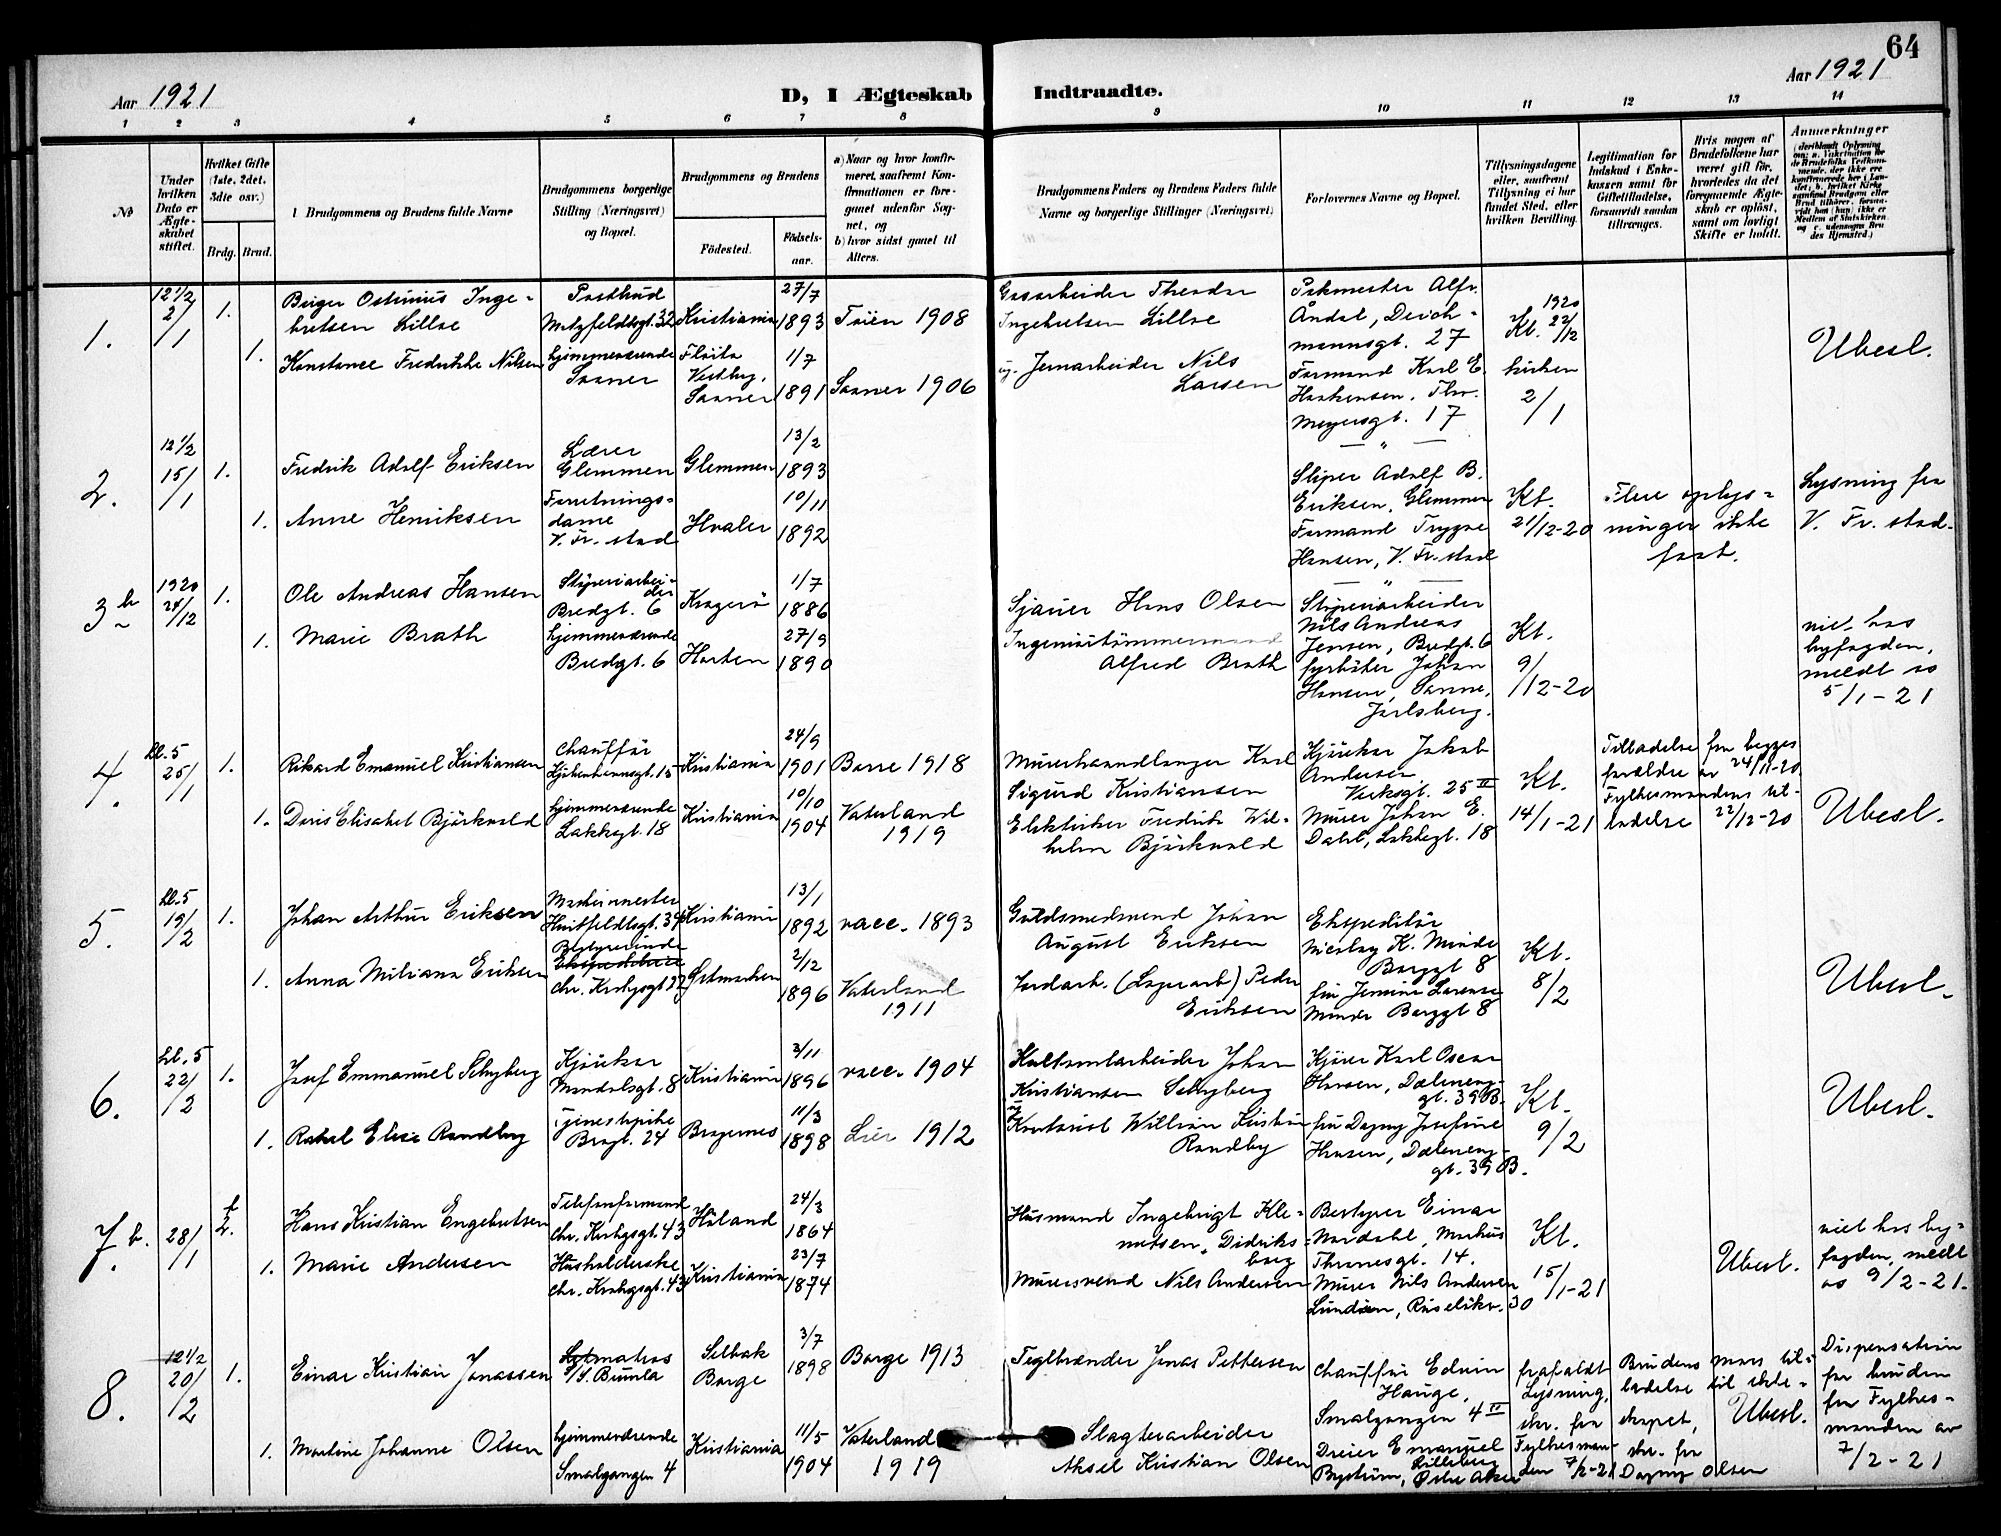 64
Aar 1921
D, I Ægteskab Indtraadte.
Aar 1921
1 2 3 4 5 6 7 8 9 10 11 12 13 14
№
Under hvilken Dato er Ægteskabet stiftet.
Hvilket Gifte (1ste, 2det, 3die osv.)
Brdg. Brud.
Brudgommens og Brudens fulde Navne
Brudgommens borgerlige Stilling (Næringsvei) og Bopæl.
Brudgommens og Brudens
Födested.
Födsels-aar.
a) Naar og hvor konfirmeret, saafremt Konfirmationen er foregaaet udenfor Sognet, og
b) hvor sidst gaaet til Alters.
Brudgommens Faders og Brudens Faders fulde Navne og borgerlige Stillinger (Næringsvei)
Forlovernes Navne og Bopæl.
Tillysningsdagene eller, saafremt Tillysning ei har fundet Sted, efter hvilken Bevilling.
Legitimation for Indskud i Enkekassen samt for Giftetilladelse, forsaavidt saadan tiltrænges.
Hvis nogen af Brudefolkene har været gift før, hvorledes da det foregaaende Ægteskab er oplöst, samt om lovligt Skifte er holdt.
Anmerkninger
1.
12 1/2
2/1
1.
Birger Ostinius Inge-
bretsen Lilloe
Postbud
Metzfeldtsgt. 32
Kristiania
27/7
1893
Tøien 1908
Gasarbeider Theodor
Ingebretsen Lilloe
Pakmester Alfr.
Åndal, Deich-
mannsgt. 27
1920
Kt. 22/12
1.
Konstance Fredrikke Nilsen
hjemmeværende
Soaner
Vestby,
1/7
1891
Jernarbeider Nils
Larsen
Formand Karl E.
Haakensen, Thv.
Meyersgt. 17
kirken
2/1
Ubesl.
2.
12 1/2
15/1
1.
Fredrik Adolf Eriksen
Lærer
Glemmen
Glemmen
13/2
1893
Sliper Adolf B.
Eriksen, Glemmen
1.
Anne Henriksen
Forretnings-
dame
V. Fr. stad
Hvaler
10/11
1892
Formand Trygve
Hansen, V. Fr. stad
Kt.
21/12-20
Flere oplys-
ninger ikke
faat.
Lysning fra
V. Fr. stad.
3 b
1920
24/12
1.
Ole Andreas Hansen
Støperiarbei-
der
Bredgt. 6
Kragerø
1/7
1886
Sjauer Hans Olsen
Støperiarbeider
Nils Andreas
Jensen, Bredgt. 6
1.
Marie Brath
hjemmeværende
Bredgt. 6
Horten
27/9
1890
Ingeniørtømmermand
Alfred Brath
fyrbøter Johan
Hansen, Sanne,
Jarlsberg.
Kt.
9/12-20
viet hos
byfogden,
meldt os
5/1-21
4.
kl. 5
25/1
1.
Rikard Emanuel Kristiansen
chauffør
Kjøbenhavnsgt. 15
Kristiania
24/9
1901
Borre 1918
Murerhaandlanger Karl
Sigurd Kristiansen
Kjøkar Jakob
Andersen
Verksgt. 25 II
1.
Doris Elisabet Bjørkvold
hjemmeværende
Lakkegt. 18
Kristiania
10/10
1904
Vaterland
1919
Elektriker Fredrik Wil-
helm Bjørkvold
Murer Johan E.
Dahl, Lakkegt. 18
Kt.
14/1-21
Tilladelse fra begges
forældre av 24/11-20
Fylkesmandens til-
ladelse 22/12-20
Ubesl.
5.
kl. 5
19/2
1.
Johan Arthur Eriksen
Maskinmester
Huitfeldtsgt. 34
Kristiania
13/1
1892
vacc. 1893
Guldsmedsvend Johan
August Eriksen
Ekspeditør
Nicolay K. Minde
Borggt 8
1.
Anna Miliana Eriksen
Bestyrerinde
Chr. Krohgsgt 27
2/12
1896
Vaterland
1911
Jordarb. (Lagerarb) Peder
Eriksen
fru Jenine Larense
Minde Borggt 8
Kt.
8/2
Ubesl.
6.
kl. 5
22/2
1.
Josef Emmanuel Schyberg
Kjøkar
Mandalsgt. 8
Kristiania
3/11
1896
vacc. 1904
Kristiansen Schyberg
Kjører Karl Oscar
Hansen, Dæleneng-
gt. 39 B.
1.
Rakel Elise Randby
Tjenestepike
Brogt. 24
Bragernes
11/3
1898
Lier 1912
Kontorist William Kristian
Randby
fru Dagny Josefine
Hansen, Dæleneng-
gt. 39 B.
Kt.
9/2
Ubesl.
7 b.
28/1
f
2.
Hans Kristian Engebretsen
Telefonformand
Chr. Krohgsgt. 43
Høland
24/3
1864
Husmand Ingebrigt Kle-
metsen, Didriks-
berg
Bestyrer Einar
Nordahl, Markus
Thranesgt. 14.
1.
Marie Andersen
Husholderske
Chr. Krohgsgt. 43
Kristiania
23/7
1874
Murersvend Nils Andersen
Murer Nils Andersen
Lundien, Ruseløkv. 30
Kt.
15/1-21
Ubesl.
viet hos by-
fogden, meldt
os 9/2-21.
8.
12 1/2
20/2
1.
Einar Kristian Jonassen
matros
S/S. Brumla
Selbak
Borge
3/7
1898
Borge 1913
Teglbrænder Jonas Pettersen
chauffør Edvin
Hauge,
Smalgangen 4 IV
1.
Martine Johanne Olsen
hjemmeværende
Smalgangen 4
Kristiania
11/5
1904
Vaterland
1919
Slagteriarbeider
Aksel Kristian Olsen
Dreier Emanuel
Bystrøm, Østre Aker
frafaldt
Lysning,
skr. fra
Fylkesman-
den 7/2-21
Brudens mors til-
ladelse til ekte-
skapet,
skr. fra
Dagny Olsen
Ubesl.
Dispensation
for bruden
fra Fylkes-
manden av
7/2-21